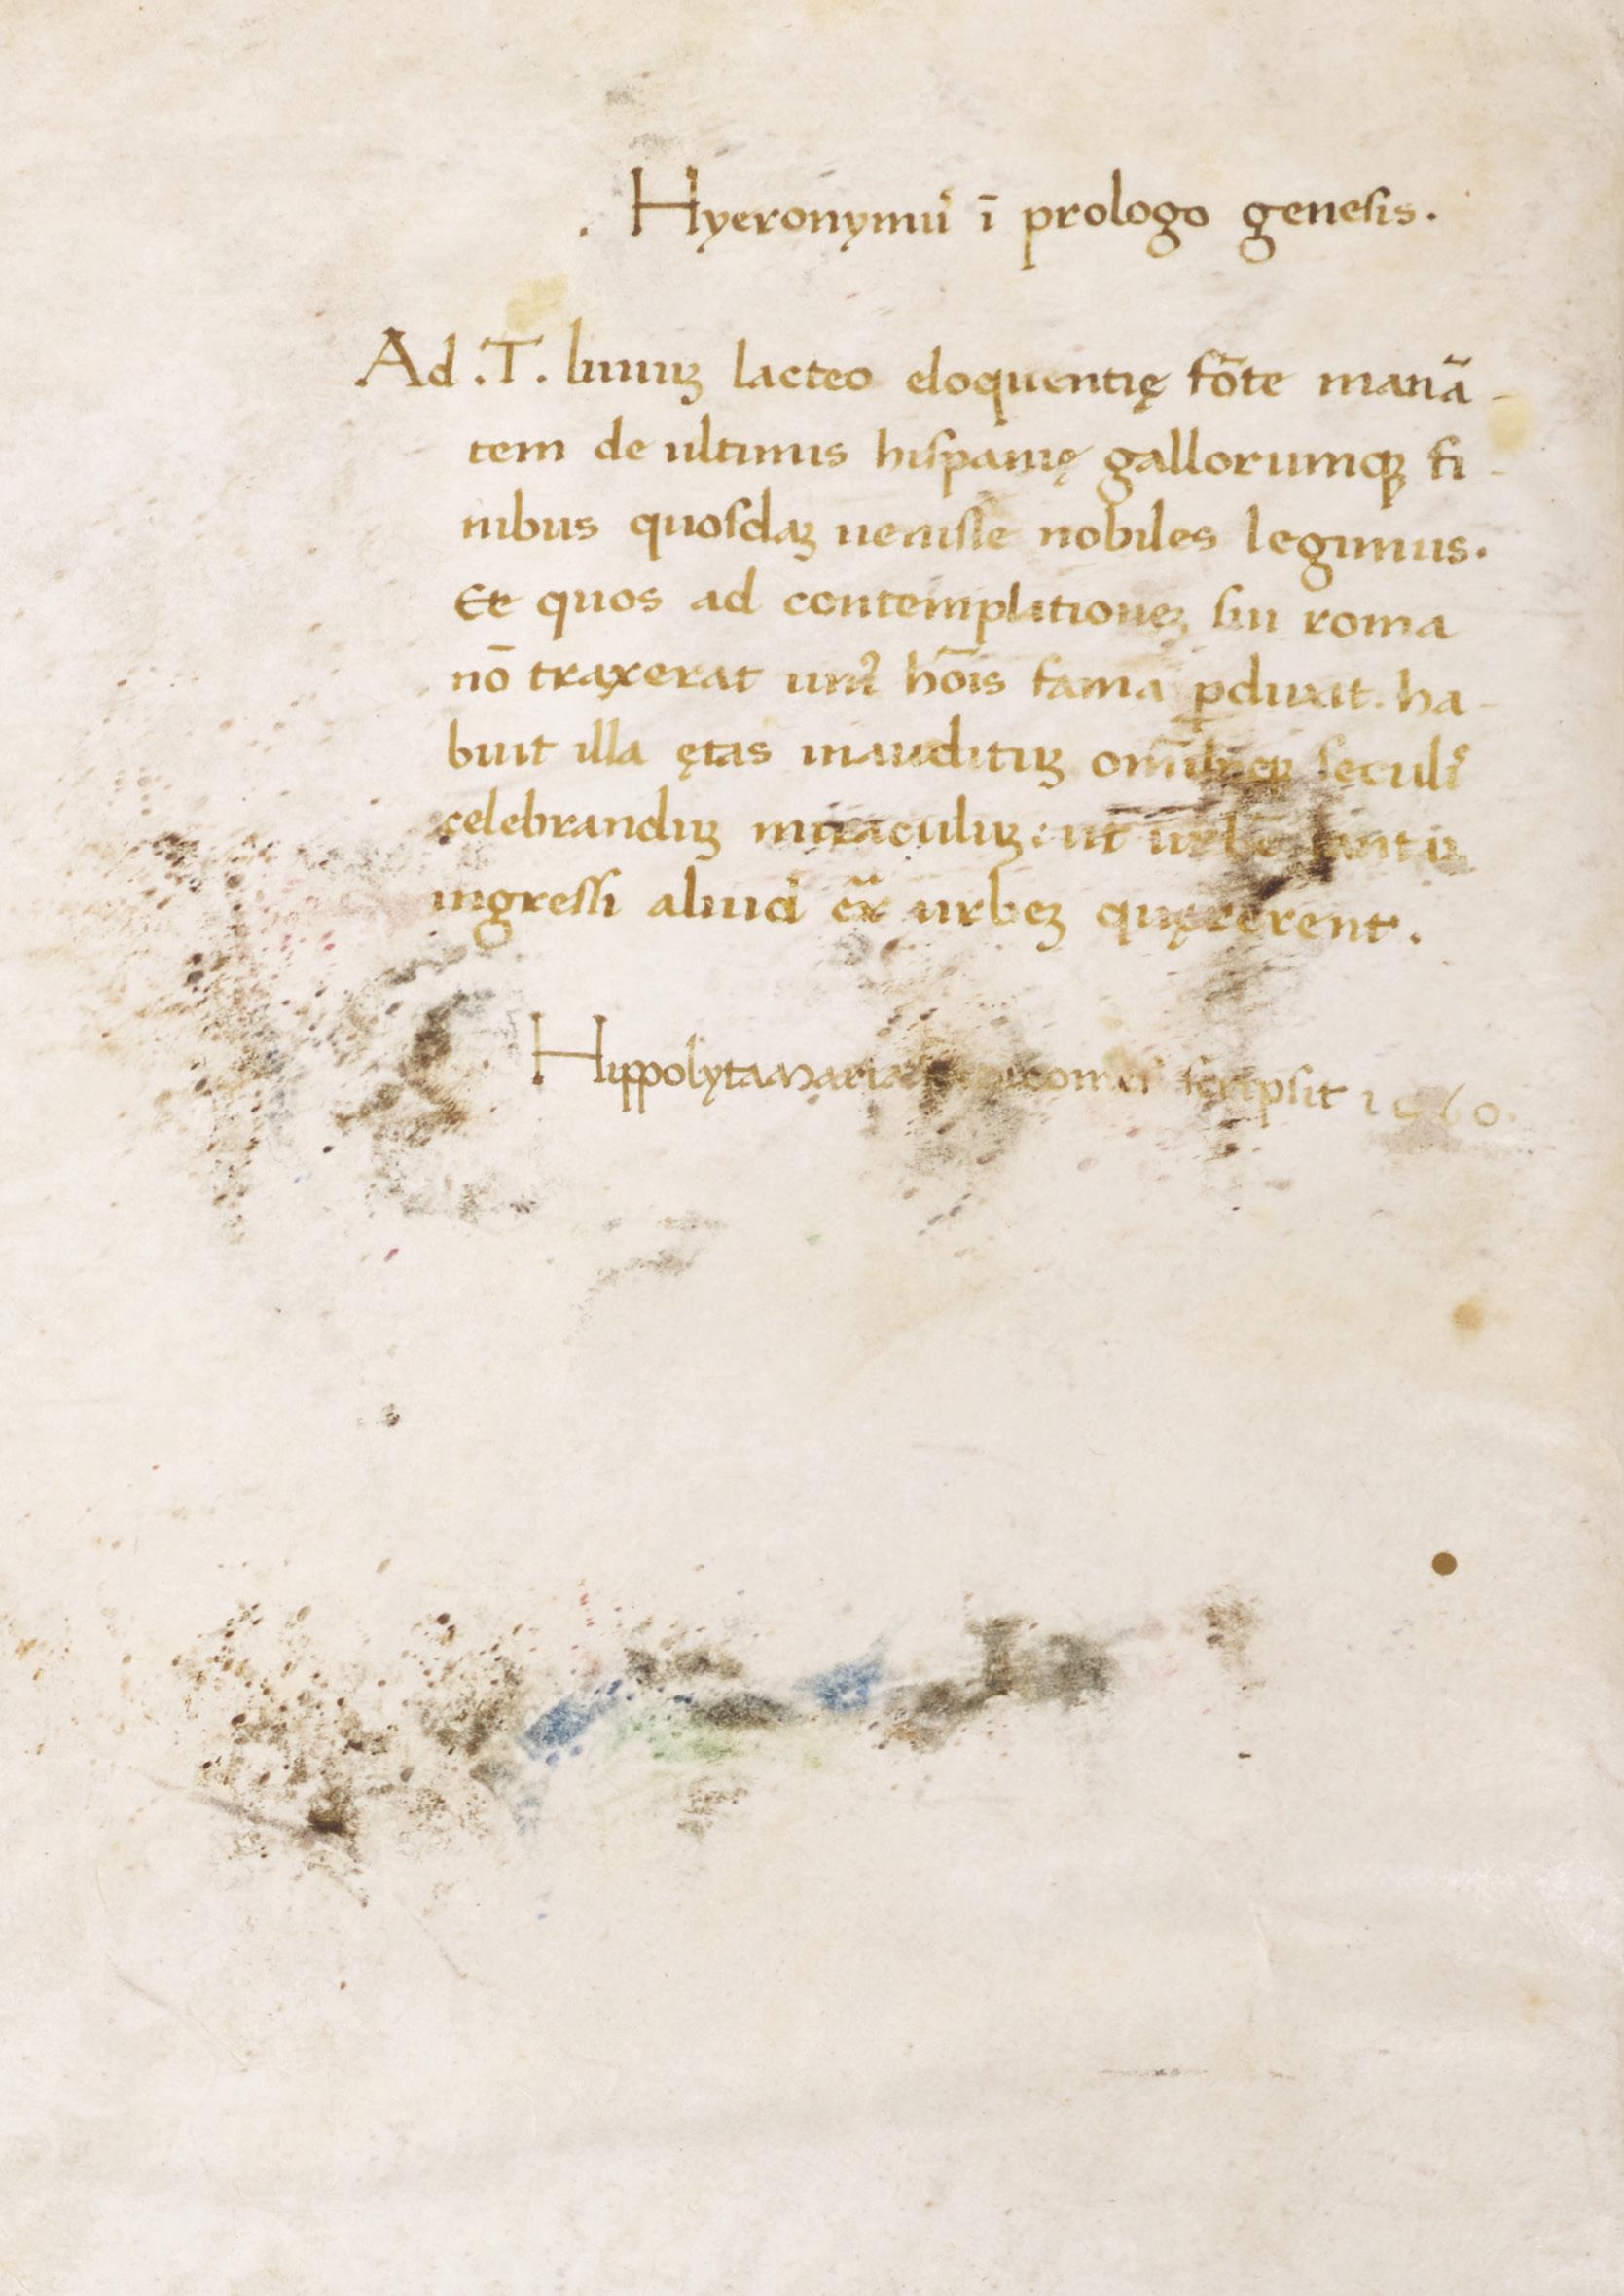 . Hyeronymu᷒ ī prologo genesis.
Ad .T. liuiuꝫ lacteo eloquentię fōte manā-
tem de ultimis hispanię gallorumqꝫ fi-
nibus quosdaꝫ uenisse nobiles legimus.
Et quos ad contemplationeꝫ sui roma
nō traxerat uniꝰ hōis fama ꝑduxit. ha-
buit illa ętas inaudituꝫ omībusqꝫ seculi᷒
celebranduꝫ miraculuꝫ: ut urbē tantā
ingressi aliud ex̄ urbeꝫ quęrerent.
. Hippolyta Maria scripsit